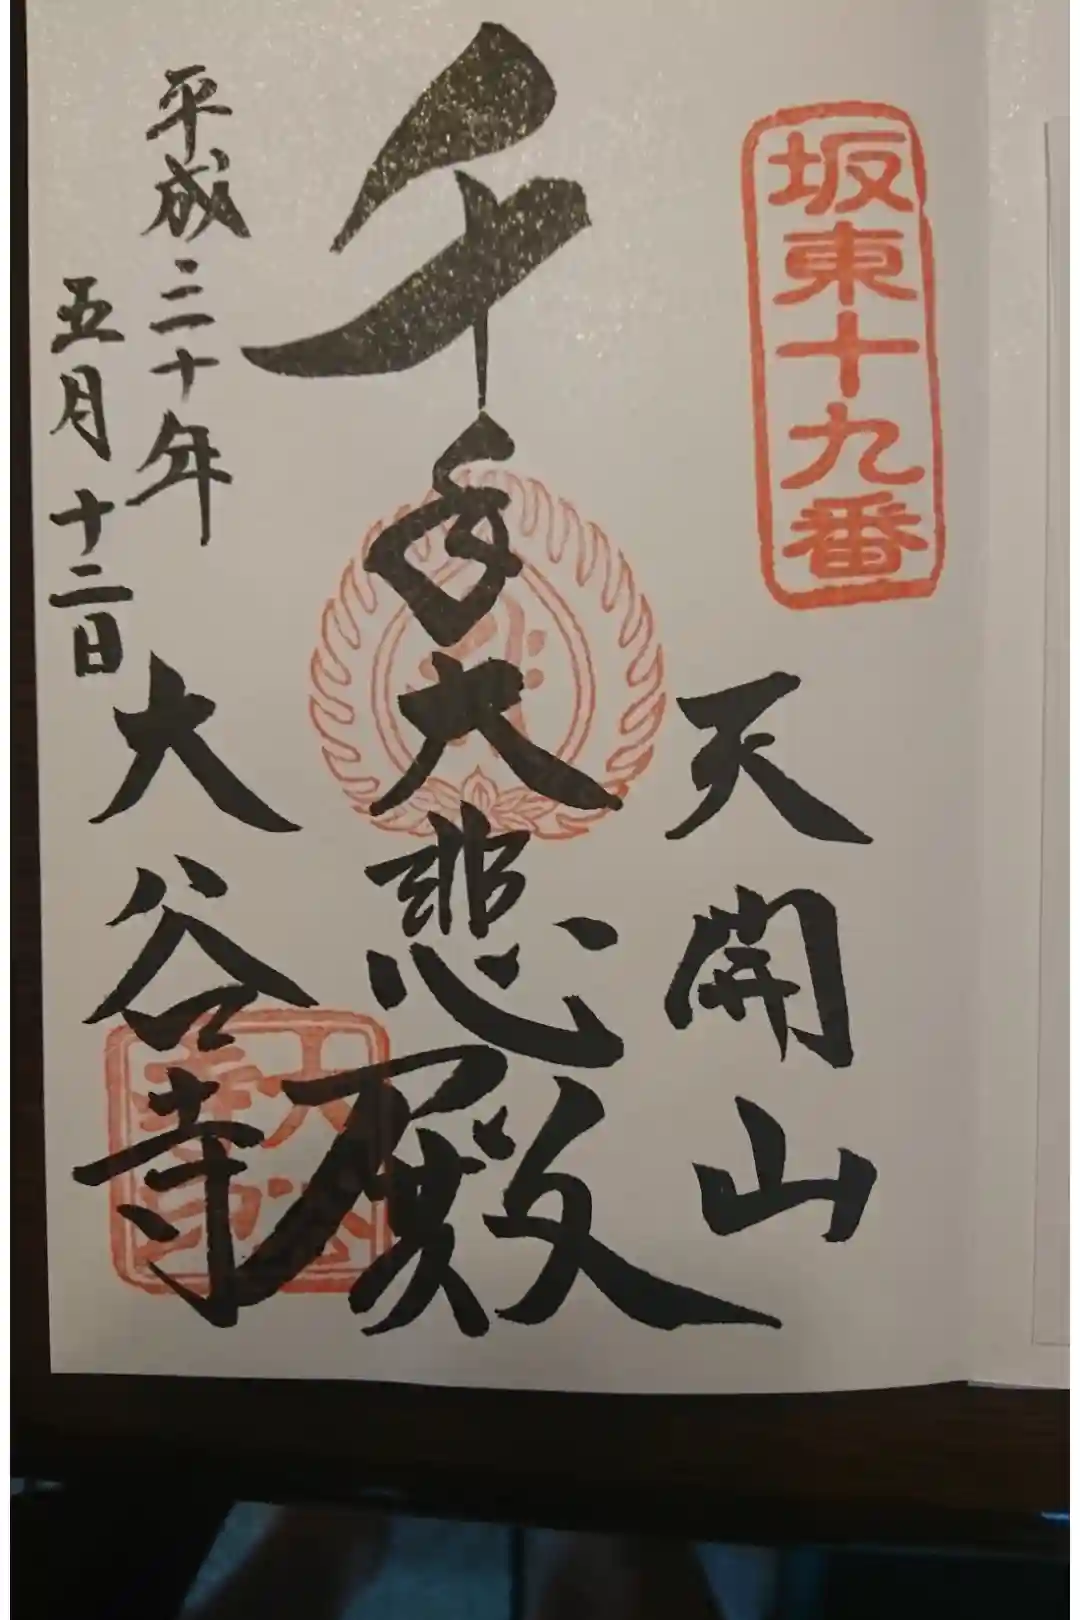 坂東十九番
天開山
千手大悲殿
大谷寺
平成三十年
五月十二日
大谷
寺印